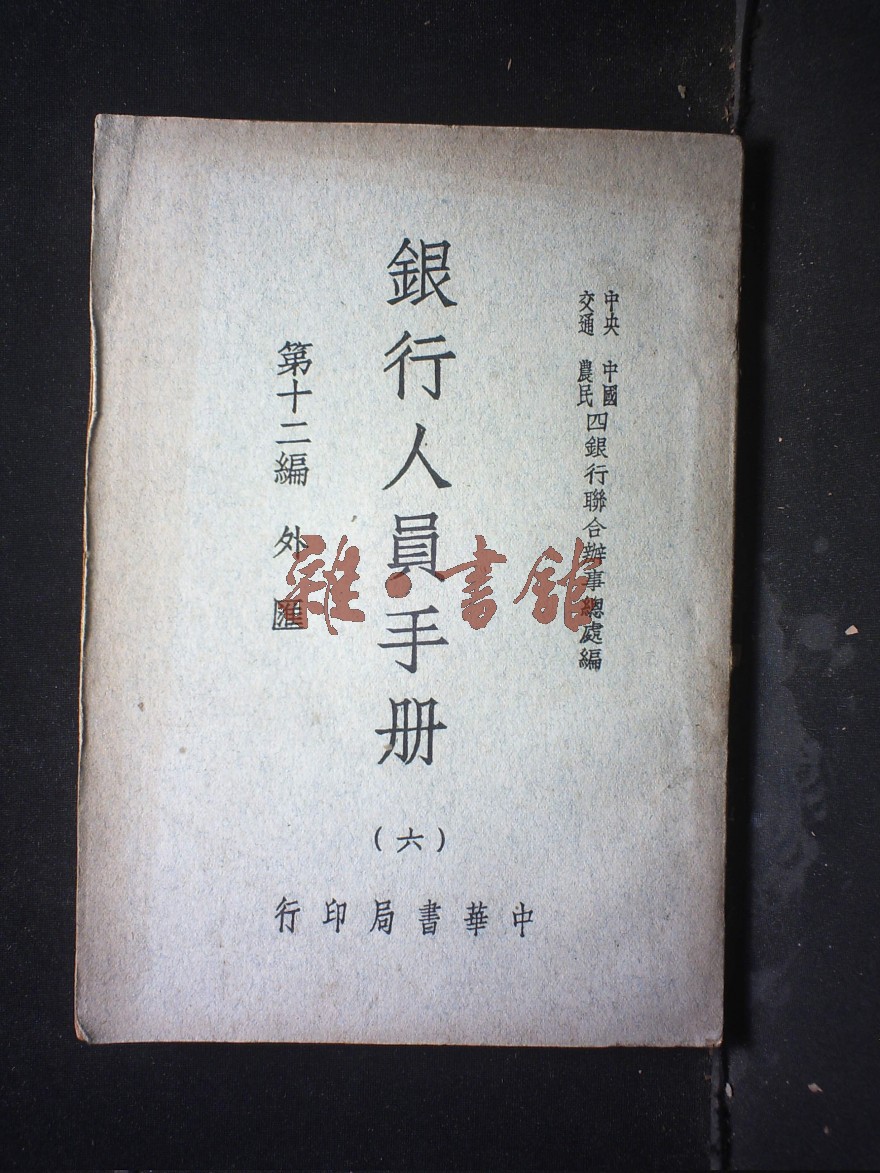 中央 中國
交通 農民
四銀行聯合辦事總處編
銀行人員手册
(六)
第十二編 外匯
中華書局印行
雜·書館